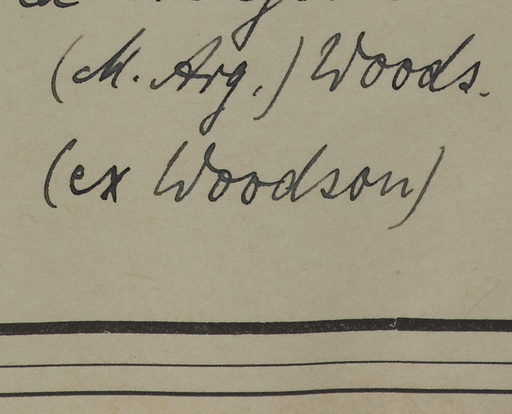 (M. Arg.) Woods.
(ex Woodson)